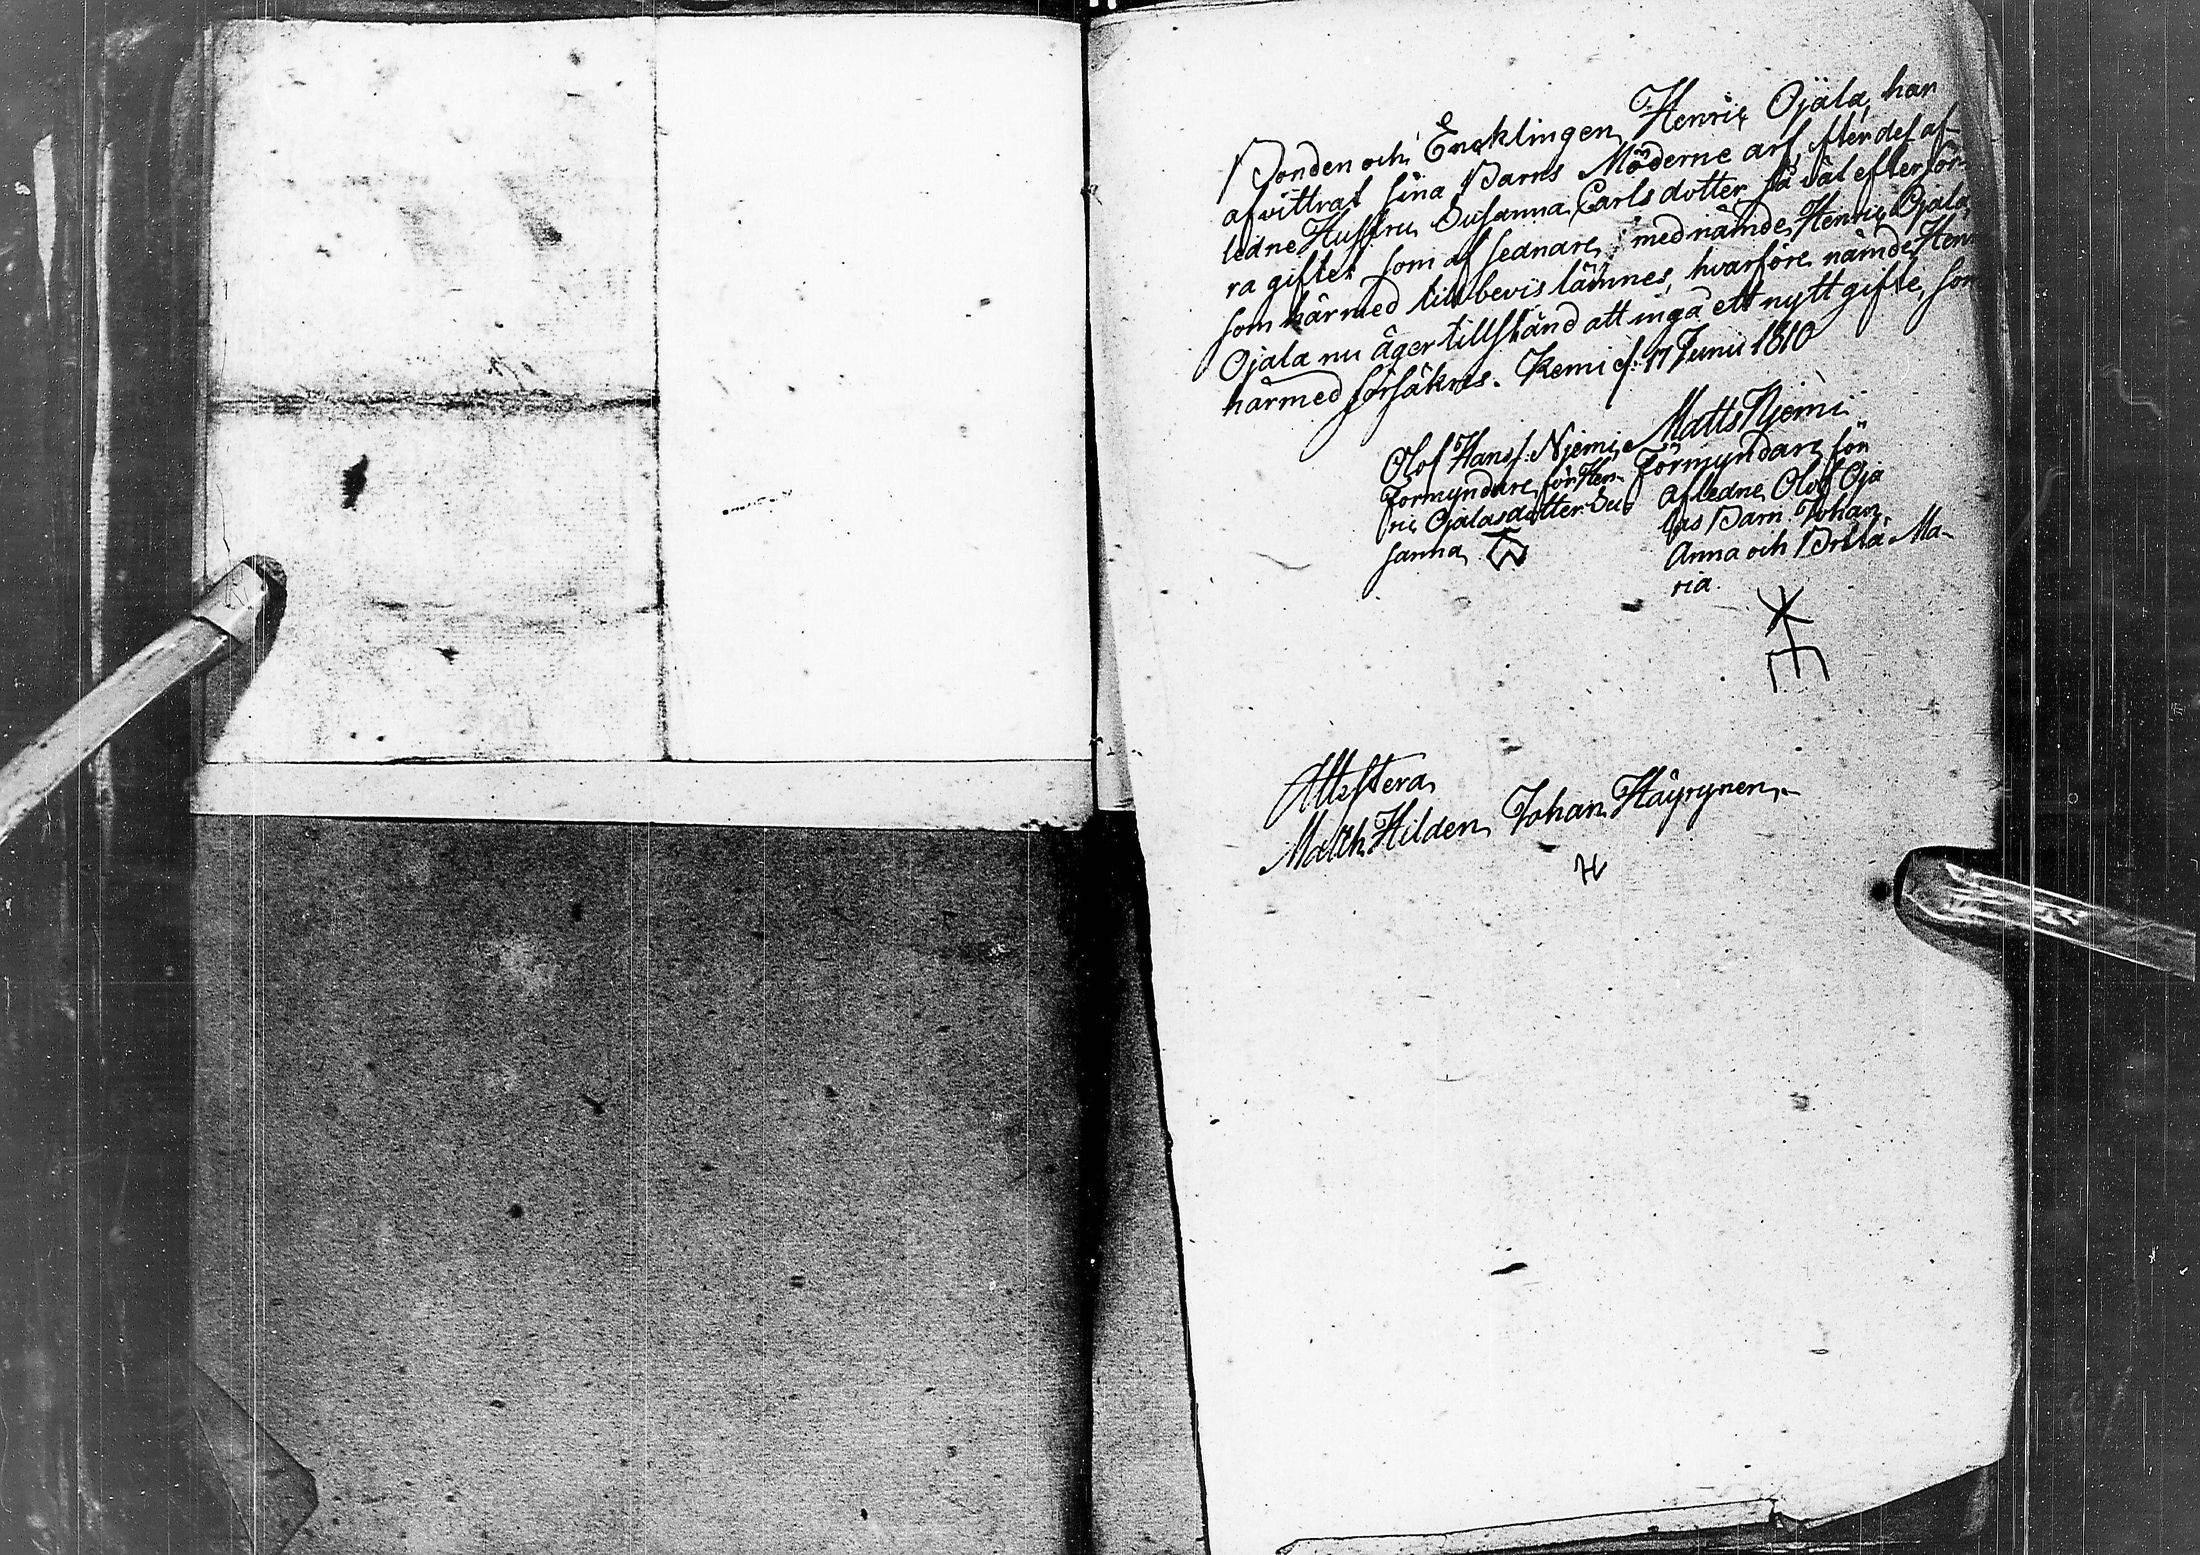 Bonden och Encklingen Henric Ojala, har
afvittrat sina Barns Möderne arf, efter des af-
ledne Hustru Susanna Carls dotter så väl efter för-
ra giftet som af sednare, med nämde Henric Ojala,
som härmed till bevis lämnes, hvarföre nämde Hen
Ojala nu äger tillstånd att ingå ett nytt gifte, som
härmed försäkres. Kemi d: 17 Junii 1810
Olof Hanss: Njemi
Formyndare för Hen-
ric Ojalas dotter Su-
sanna
Matts Njemi
Förmyndare för
afledne Olof Oja
las Barn Johan,
Anna och Brita Ma-
ria.
Attestera
Math Hilden Johan Häyrynen
H